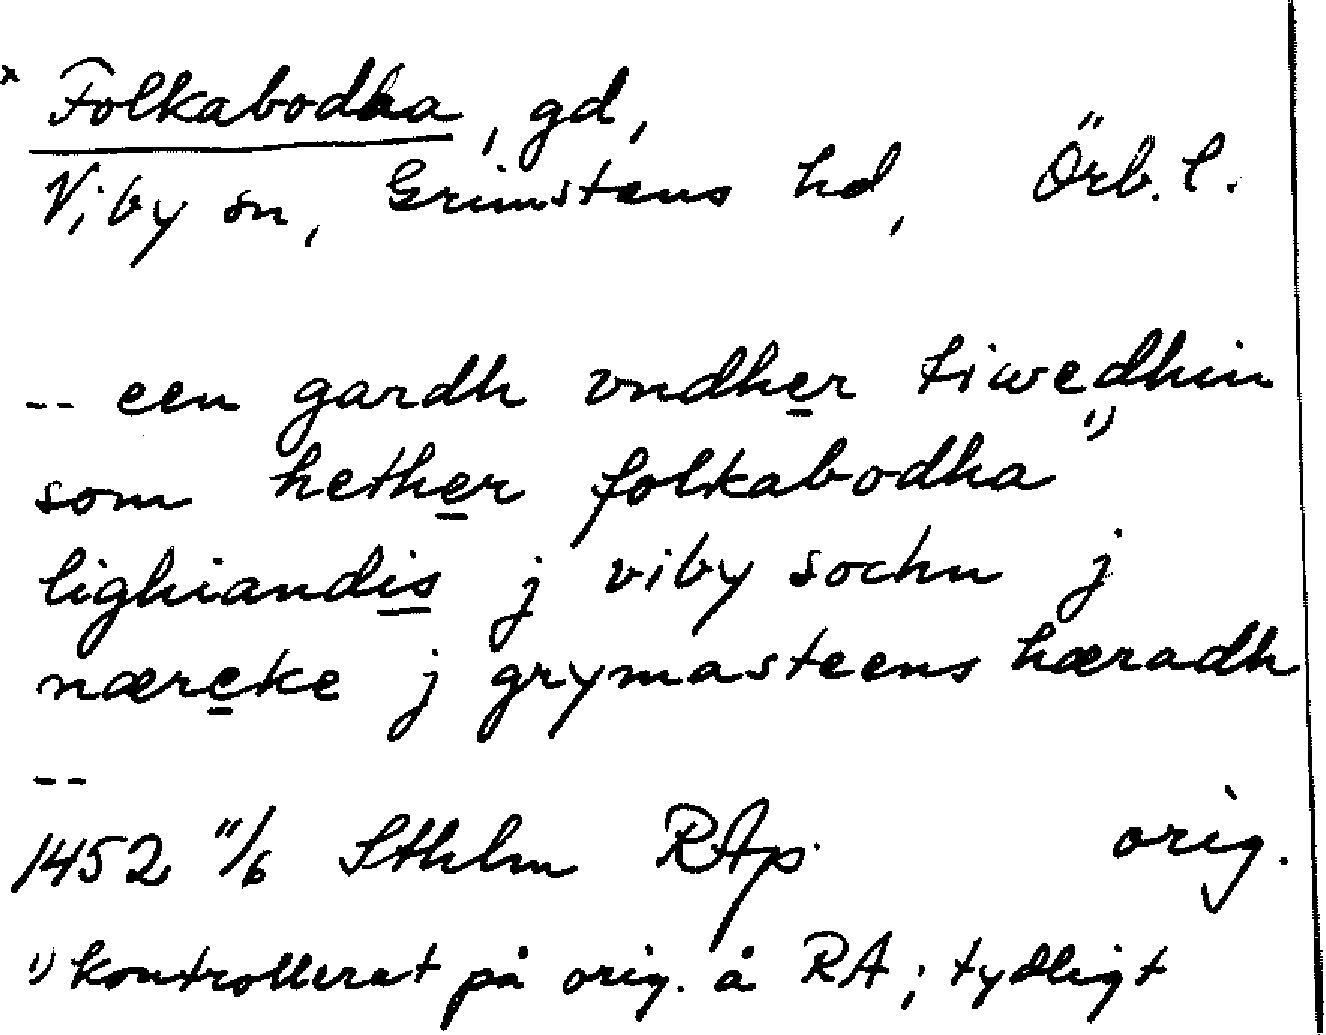 × Folkabodha, gd,
Viby sn, Grimstens hd, Örb. l.
-- een gardh vndher tiwedhin
som hether folkabodha 1)
lighiandis j viby sochn j
næreke j grymasteens hæradh
--
1452 11/6 Sthlm RAp orig.
1) kontrollerat på orig. å RA; tydligt